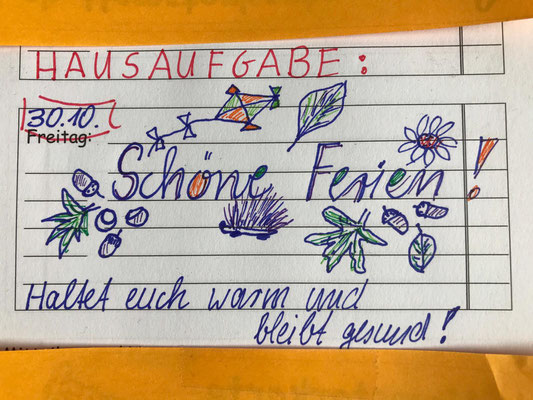 HAUSAUFGABE:
30.10.
Freitag:
Schöne Ferien!
Haltet euch warm und
bleibt gesund!